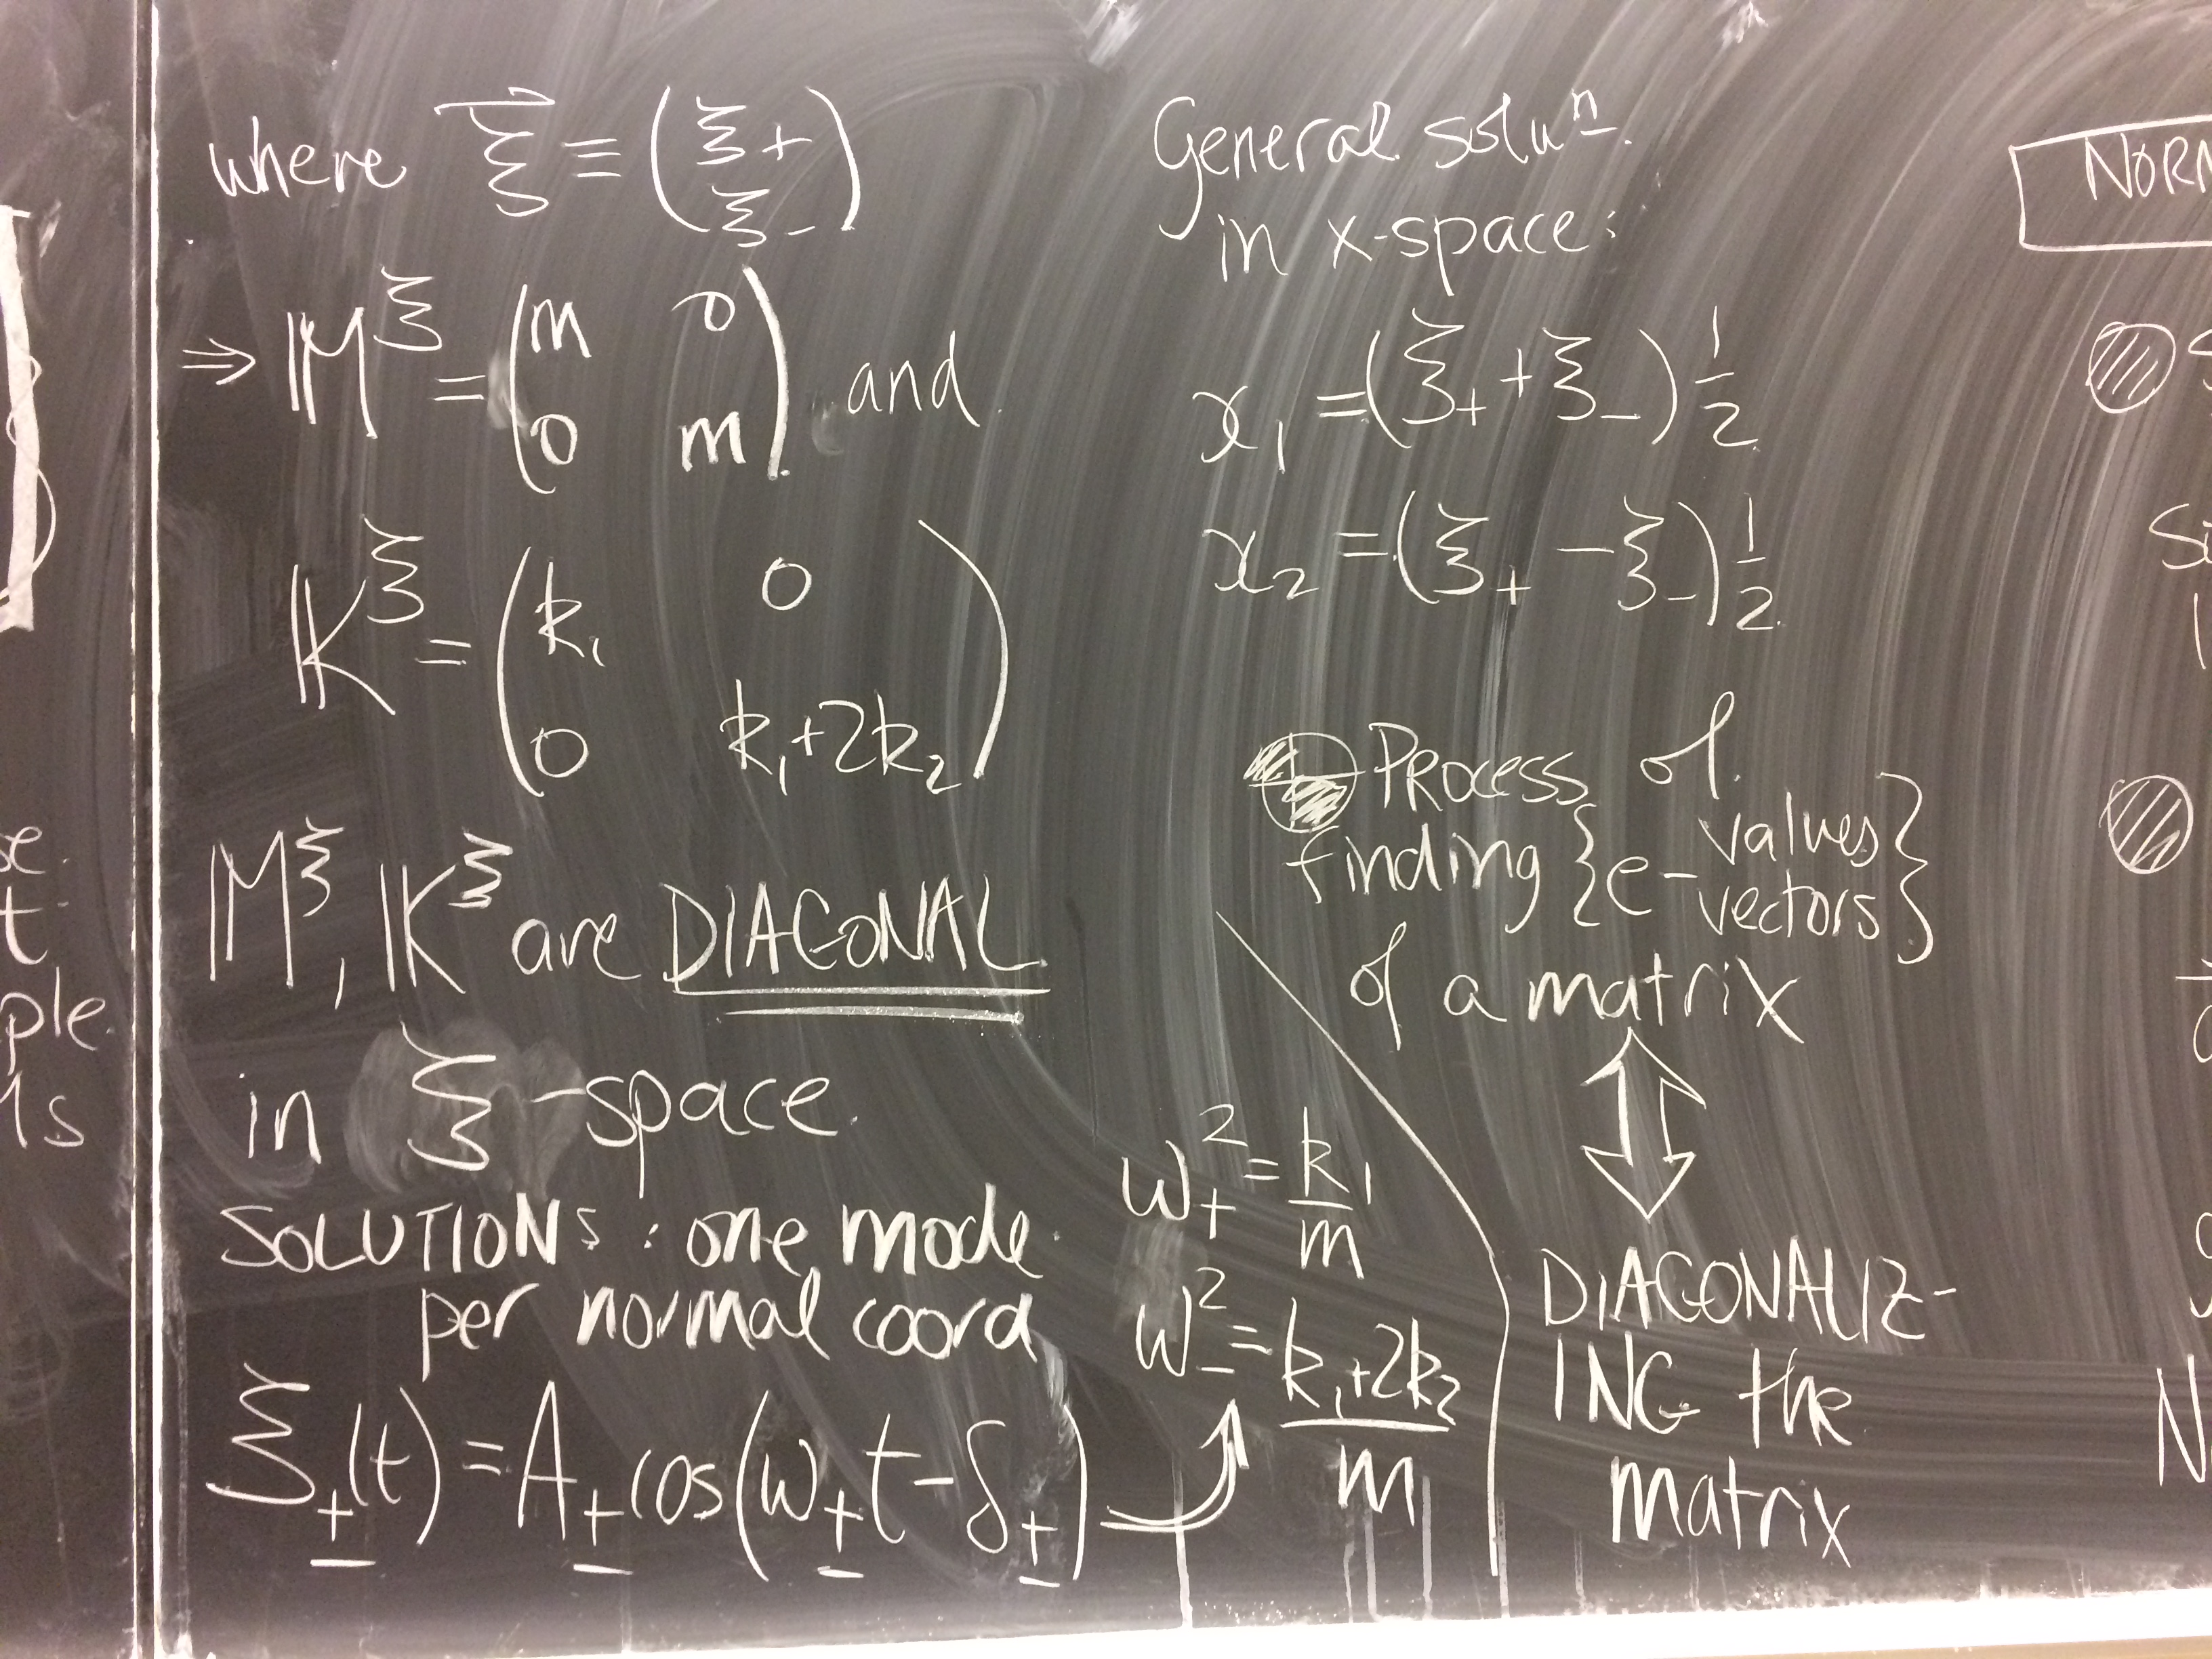 where ξ⃗ ≡ (ξ+
ξ-)
⇒ M^ξ = (m 0
0 m) and
K^ξ = (k₁ 0
0 k₁+2k₂)
M^ξ, K^ξ are DIAGONAL
in ξ-space.
SOLUTIONS: one mode
per normal coord
ξ±(t) = A± cos(ω±t - δ±)
ω+² = k₁/m
ω-² = k₁+2k₂/m
General soluⁿ.
in x-space:
x₁ = (ξ+ + ξ-) 1/2
x₂ = (ξ+ - ξ-) 1/2
PROCESS of
finding {e- values
vectors}
of a matrix
⇕
DIAGONALIZ-
ING the
matrix